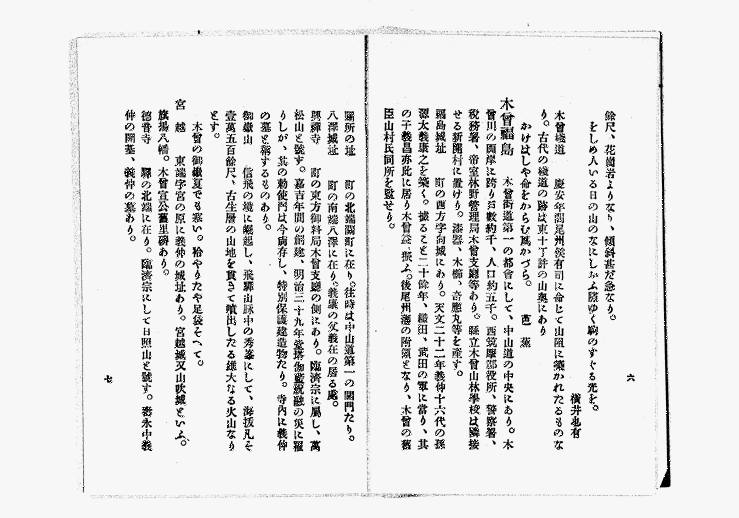 餘尺、花崗岩よりなり、傾斜甚だ急なり。
をしめ人いる日の山のなにしかふ隙ゆく駒のすぐる光を。
横井也有
木曾棧道 慶安年間尾州侯有司に命じて山阻に築かれたるものな
り。古代の棧道の跡は東十丁許の山奥にあり
かけはしや命をからむ蔦かづら。 芭蕉
木曾福島 木曾街道第一の都會にして、中山道の中央にあり。木
曾川の兩岸に跨り戸數約千、人口約五千。西筑摩郡役所、警察署、
税務署、帝室林野管理局木曾支廳等あり。縣立木曾山林學校は隣接
せる新開村に置けり。漆器、木櫛、奇應丸等を産す。
福島城址 町の西方字向城にあり。天文二十二年義仲十六代の孫
源太義康之を築く。據ること二十餘年、織田、武田の軍に當り、其
の子義昌亦此に居り木曾谷 振ふ。後尾州藩の所領となり、木曾の舊
臣山村氏同所を監せり。
六
關所の址 町の北端關町に在り。往時は中山道第一の關門たり。
八澤城址 町の南端八澤に在り。義康の父義在の居る處。
興禪寺 町の東方御料局木曾支廳の側にあり。臨濟宗に屬し、萬
松山と號す。嘉吉年間の創建、明治三十九年堂塔伽藍祝融の災に罹
りしが、其の勅使門は今尚存し、特別保護建造物たり。寺内に義仲
の墓と稱するものあり。
御嶽山 信飛の境に崛起し、飛驒山脈中の秀峯にして、海拔凡そ
壹萬五百餘尺、古生層の山地を貫きて噴出したる雄大なる火山なり
とす。
木曾の御嶽夏でも寒い。袷やりたや足袋そへて。
宮越 東端字宮の原に義仲の城址あり。宮越城又山吹城といふ。
旗揚八幡。木曾宣公舊里碑あり。
德音寺 驛の北端に在り。臨濟宗にして日照山と號す。香永中義
仲の開基、義仲の墓あり。
七